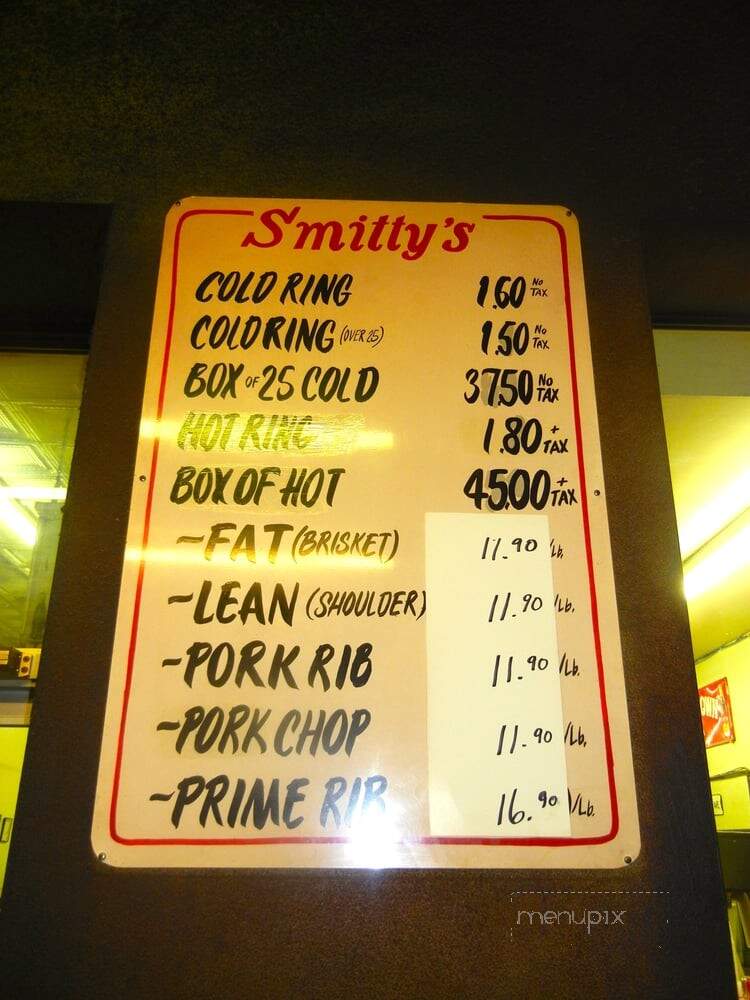 Smitty's
COLD RING 1.60 NO TAX
COLD RING (OVER 25) 1.50 NO TAX
BOX OF 25 COLD 37.50 NO TAX
HOT RING 1.80 + TAX
BOX OF HOT 45.00 + TAX
~FAT (BRISKET) 11.90 /Lb.
~LEAN (SHOULDER) 11.90 /Lb.
~PORK RIB 11.90 /Lb.
~PORK CHOP 11.90 /Lb.
~PRIME RIB 16.90 /Lb.
menupix